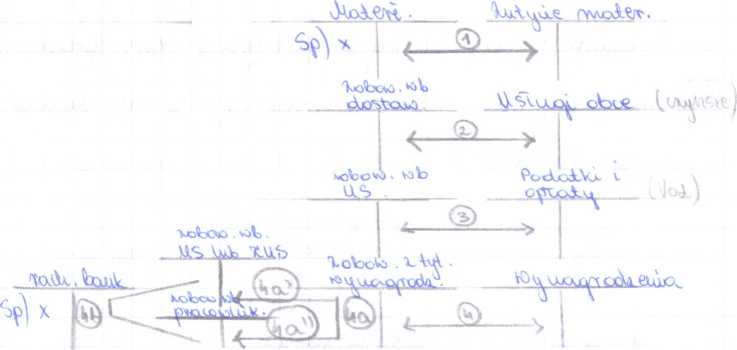 Mater. Zużycie mater.
Sp) x 1
zobow. wb
dostaw. Usługi obce
2
zobow. wb
US Podatki i
opłaty (Vat)
3
zobow. wb.
US lub ZUS
zobow. z tyt.
wynagrodz. Wynagrodzenia
rach. bank
zobow. wb
pracownik.
Sp) x 4b 4a' 4a'' 4a 4